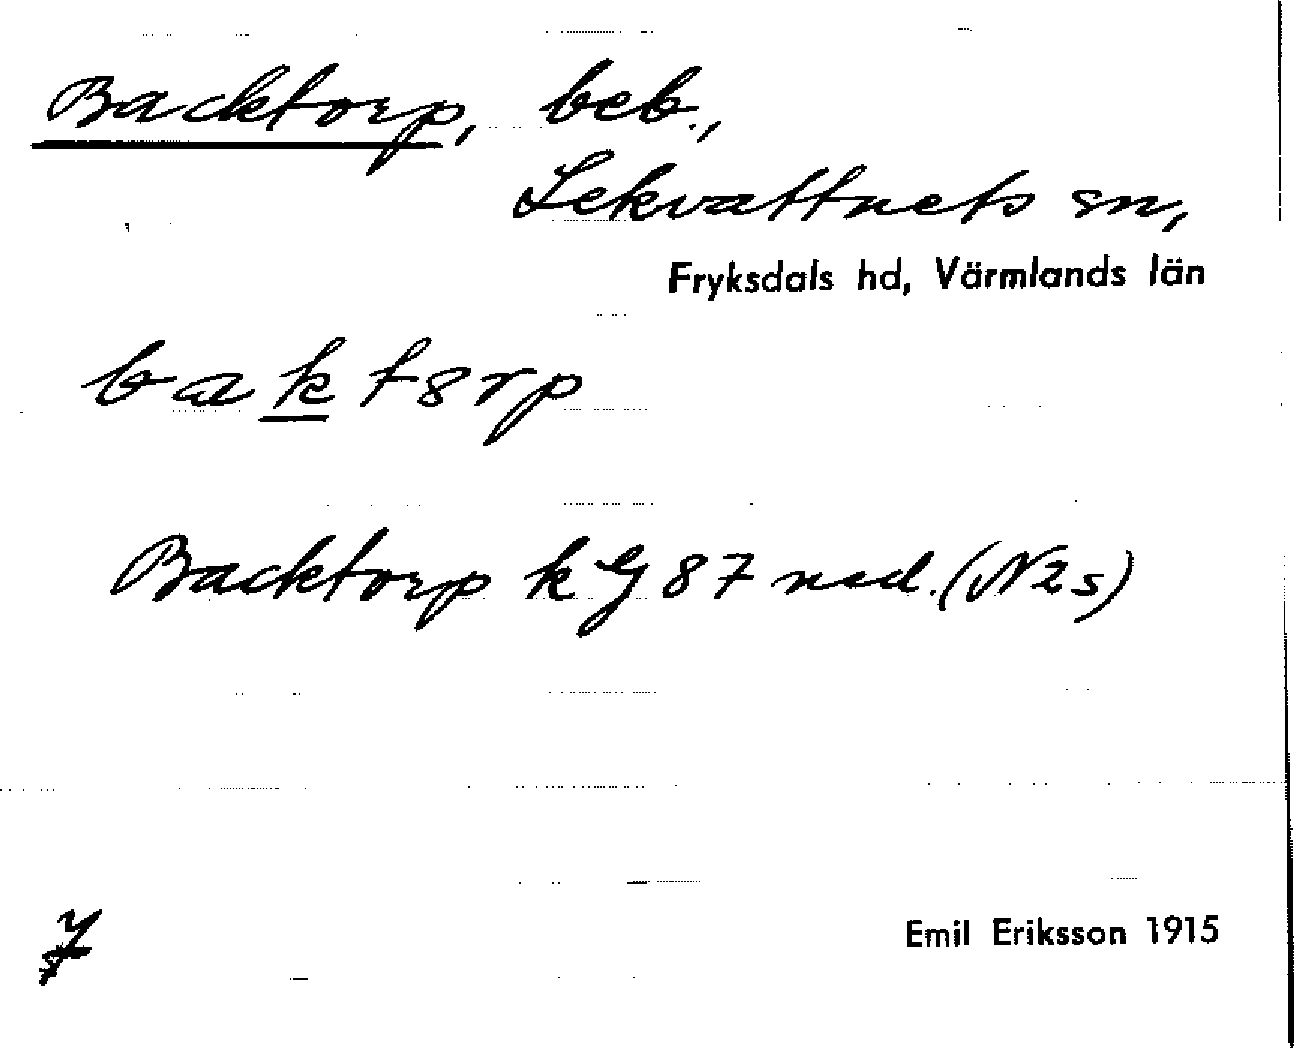 Backtorp, beb.,
Lekvattnets sn,
Fryksdals hd, Värmlands län
baktorp
Backtorp k G 87 nsd. (N2s)
7
Emil Eriksson 1915